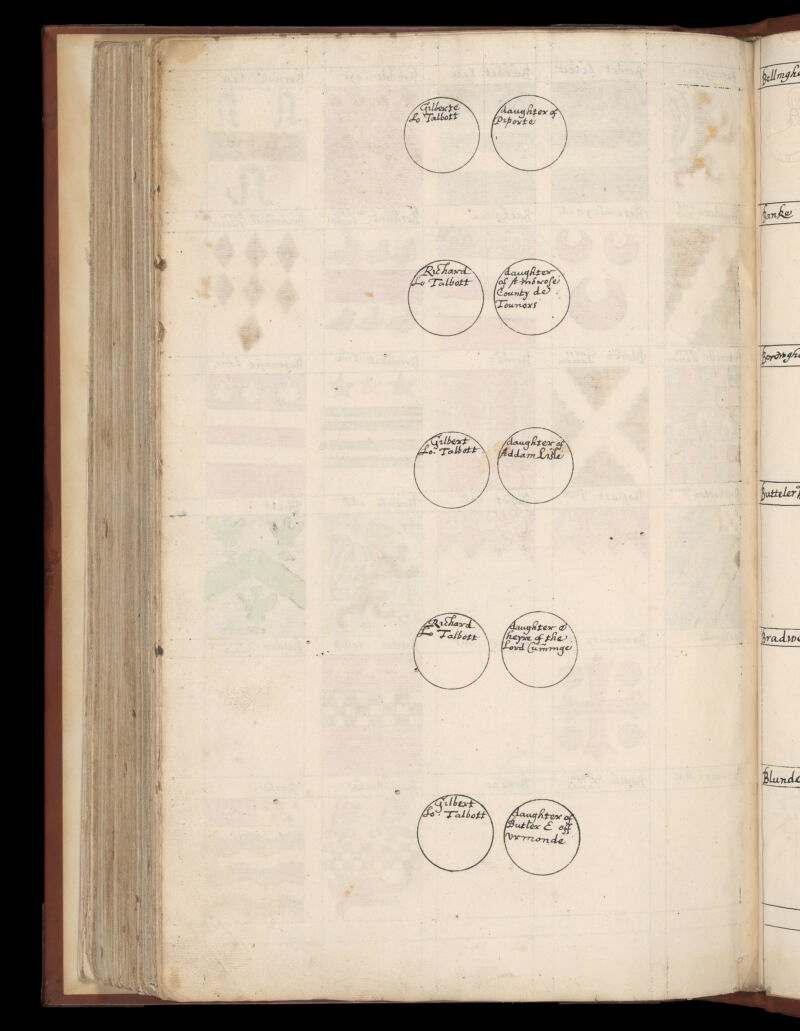 Gilberte
Lo Talbott
daughter of
Diporte
Richard
Lo Talbott
daughter
of Ambrose
County de
Touners
Gilbert
Lo: Talbott
daughter of
Addam Lisle
Richard
Lo Talbott
daughter &
heyre of the
Lord Cummge
Gilbert
Lo Talbott
daughter of
Butler E off
Urmonde
Banke
Blunde